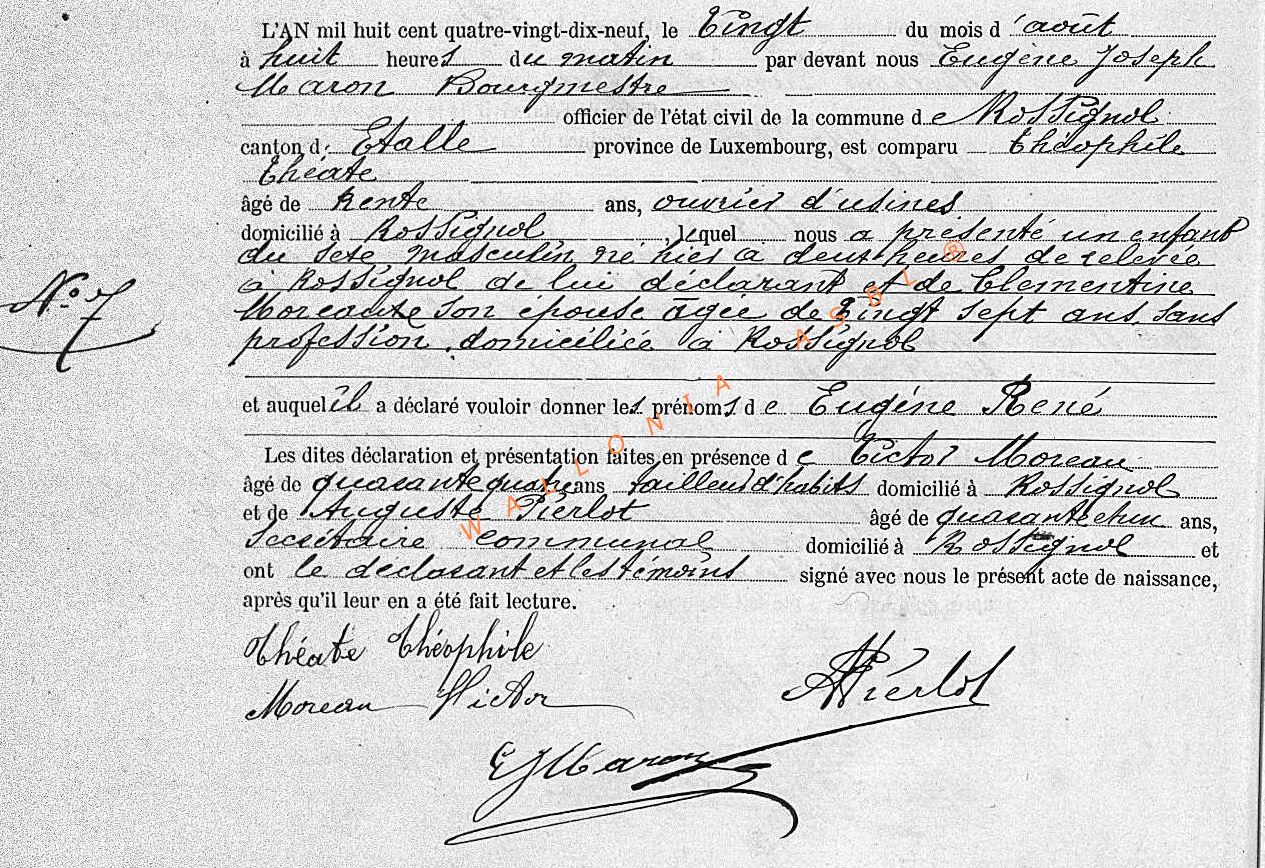 L'AN mil huit cent quatre-vingt-dix-neuf, le Vingt du mois d'août
à huit heures du matin par devant nous Eugène Joseph
Maron Bourgmestre
officier de l'état civil de la commune de Rossignol
canton d' Etalle province de Luxembourg, est comparu Théophile
Théate
âgé de trente ans, ouvrier d'usines
domicilié à Rossignol, lequel nous a présenté un enfant
du sexe masculin né hier à deux heures de relevée
à Rossignol de lui déclarant et de Clementine
Moreaux son épouse âgée de Vingt sept ans, sans
profession, domiciliée à Rossignol
N° 7
et auquel il a déclaré vouloir donner les prénoms de Eugéne René
Les dites déclaration et présentation faites en présence de Victor Moreau
âgé de quarante quatre ans tailleur d'habits domicilié à Rossignol
et de Auguste Pierlot âgé de quarante et un ans,
Secrétaire communal domicilié à Rossignol et
ont le déclarant et les témoins signé avec nous le présent acte de naissance,
après qu'il leur en a été fait lecture.
Théate Théophile
Moreau Victor
APierlot
EJMaron
WALLONIA ASBL ®